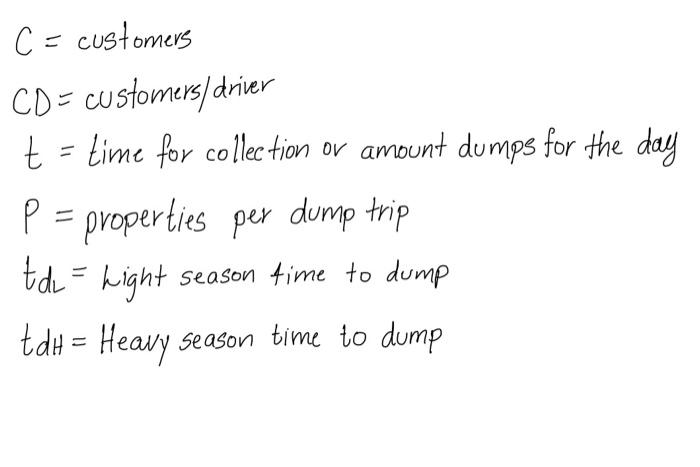 C = customers
CD = customers/driver
t = time for collection or amount dumps for the day
P = properties per dump trip
tdL = Light season time to dump
tdH = Heavy season time to dump